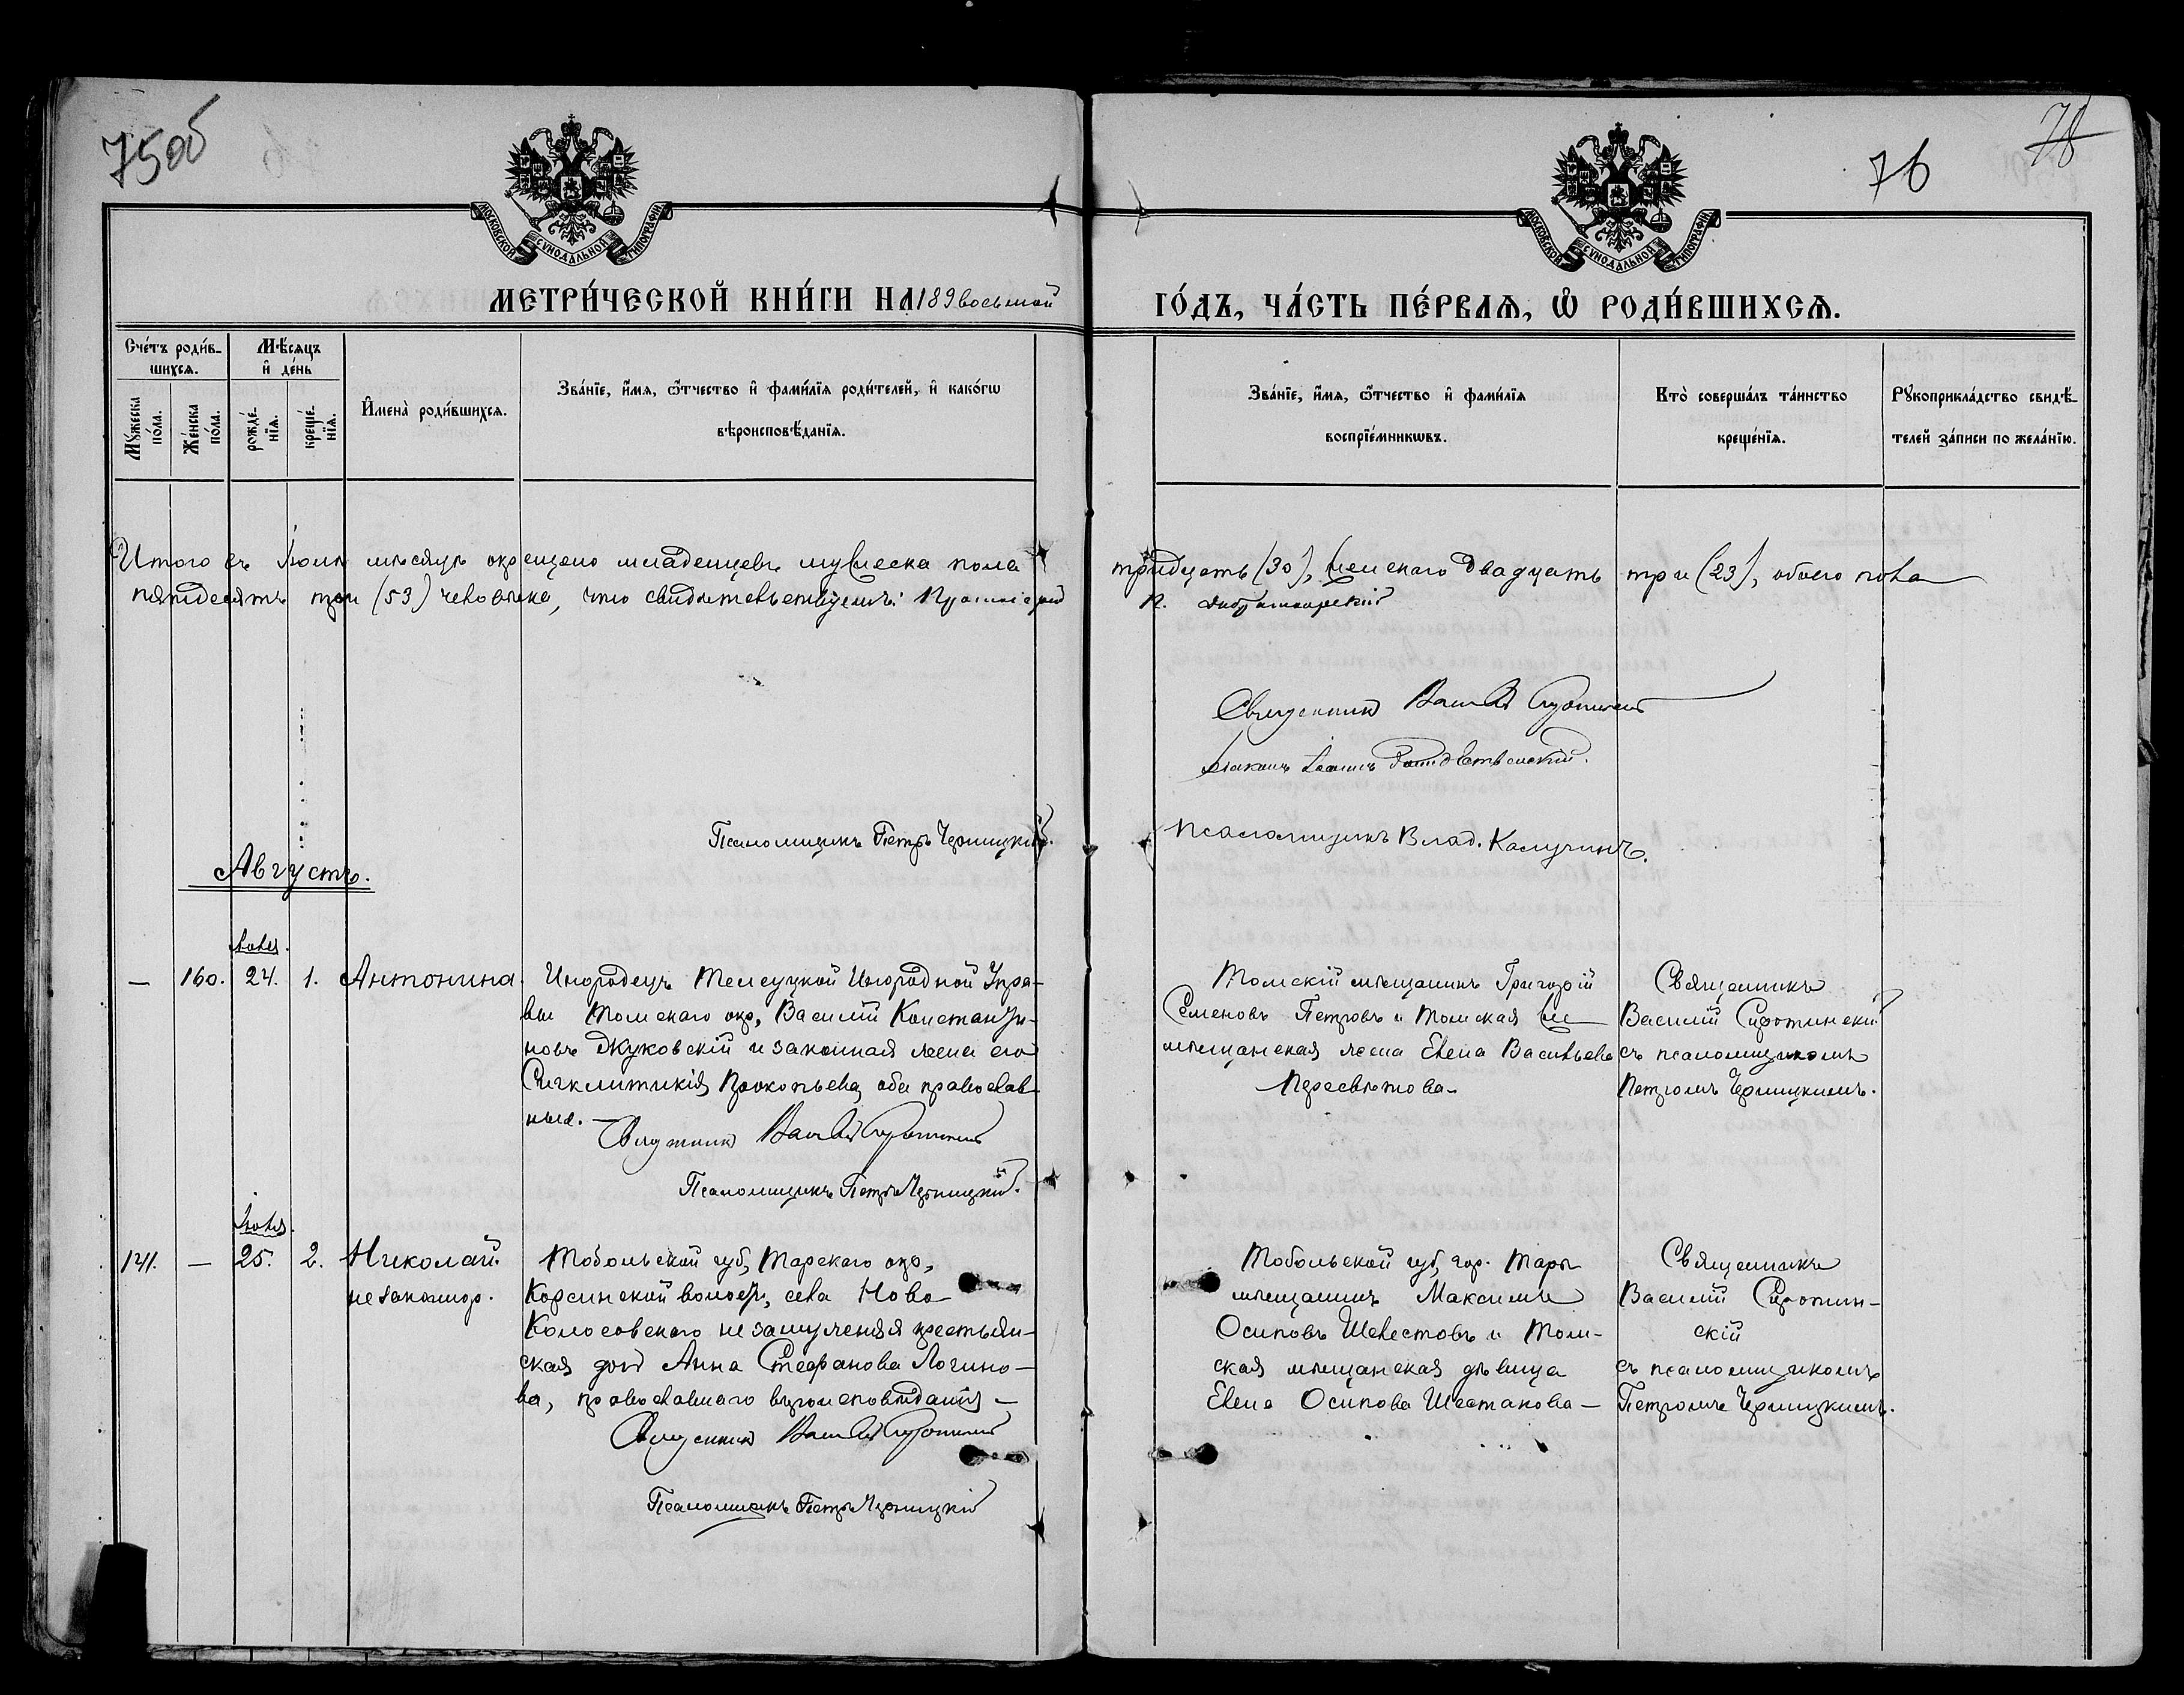 75об
76
78
МОСКОВСКОЙ СУНОДАЛЬНОЙ ТИПОГРАФИИ
МОСКОВСКОЙ СУНОДАЛЬНОЙ ТИПОГРАФИИ
МЕТРИ́ЧЕСКОЙ КНИ́ГИ НА 189восьмой
ГО́ДЪ, ЧА́СТЬ ПЕ́РВАѦ, Ѡ҆ РОДИ́ВШИХСѦ.
Сче́тъ роди́в-
шихсѧ.
Мѣ́сѧцъ
и҆ де́нь
Мꙋ́жеска
по́ла.
Же́нска
по́ла.
рожде́-
нїѧ.
креще́-
нїѧ.
И҆мена̀ роди́вшихсѧ.
Зва́нїе, и҆́мѧ, ѻ҆́тчество и҆ фами́лїѧ роди́телей, и҆ како́гѡ
вѣроисповѣ́данїѧ.
Зва́нїе, и҆́мѧ, ѻ҆́тчество и҆ фами́лїѧ
воспрїе́мникѡвъ.
Кто̀ соверша́лъ та́инство
креще́нїѧ.
Рꙋкоприкла́дство свидѣ́-
телей за́писи по жела́нїю.
Итого въ Іюлѣ мѣсяцѣ окрещено младенцевъ мужеска пола тридцать (30), женскаго двадцать три (23), обоего пола
пятьдесятъ три (53) человѣка, что свидѣтельствуемъ: Протоіерей П.
Священникъ Василій Сиротинскій
Діаконъ Іоаннъ Рождественскій.
Псаломщикъ Петръ Черницкій.
Псаломщикъ Влад. Калугинъ.
Августъ.
Іюля.
— 160. 24. 1. Антонина.
Инородецъ Телеуцкой Инородной Упра-
вы Томскаго окр., Василій Константи-
новъ Жуковскій и законная жена его
Сигклитикія Прокопьева, оба православ-
ные. —
Священникъ Василій Сиротинскій
Псаломщикъ Петръ Черницкій.
Томскій мѣщанинъ Григорій
Семеновъ Петровъ и Томская
мѣщанская жена Елена Васильева
Пересвѣтова.
Священникъ
Василій Сиротинскій
съ псаломщикомъ
Петромъ Черницкимъ.
Іюля.
141. — 25. 2. Николай.
незаконнор.
Тобольской губ., Тарскаго окр.,
Корсинской волости, села Ново-
Колосовскаго незамужняя крестьян-
ская дочь Анна Стефанова Логино-
ва, православнаго вѣроисповѣданія —
Священникъ Василій Сиротинскій
Псаломщикъ Петръ Черницкій
Тобольской губ., гор. Тары
мѣщанинъ Максимъ
Осиповъ Шелестовъ и Том-
ская мѣщанская дѣвица
Елена Осипова Шестакова —
Священникъ
Василій Сиротин-
скій
съ псаломщикомъ
Петромъ Черницкимъ.